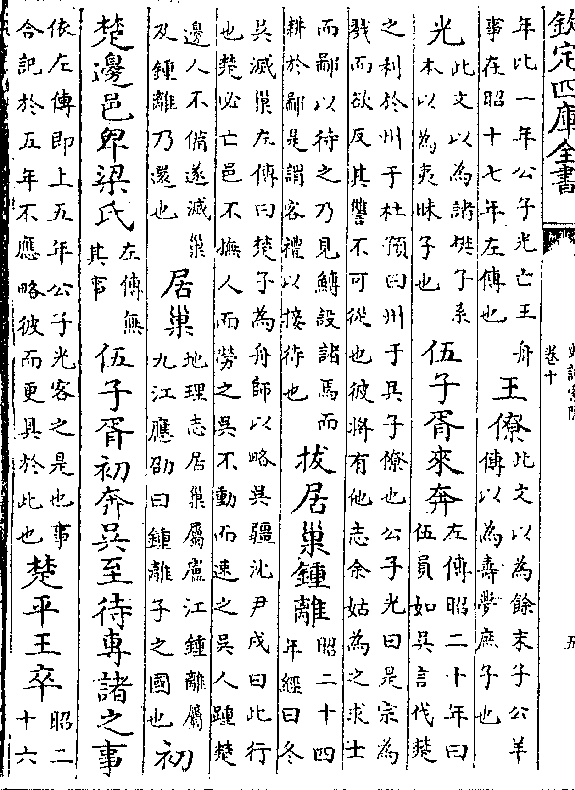 欽定四庫全書
史記索隱
卷十
五
年比一年公子光亡王舟
事在昭十七年左傳也
王僚
此文以為餘末子公羊
傳以為壽夢庶子也
光
此文以為諸樊子系
本以為夷昧子也
伍子胥來奔
左傳昭二十年曰
伍員如吳言伐楚
之利於州于杜預曰州于吳子僚也公子光曰是宗為
戮而欲反其讐不可從也彼將有他志余姑為之求士
而鄙以待之乃見鱄設諸焉而
耕於鄙是謂客禮以接待也
拔居巢鍾離
昭二十四
年經曰冬
吳滅巢左傳曰楚子為舟師以略吳疆沈尹戌曰此行
也楚必亡邑不撫人而勞之吳不動而速之吳人踵楚
邊人不備遂滅巢
及鍾離乃還也
居巢
地理志居巢屬廬江鍾離屬
九江應劭曰鍾離子之國也
初
楚邊邑卑梁氏
左傳無
其事
伍子胥初奔吳至待專諸之事
依左傳即上五年公子光客之是也事
合記於五年不應略彼而更具於此也
楚平王卒
昭二
十六